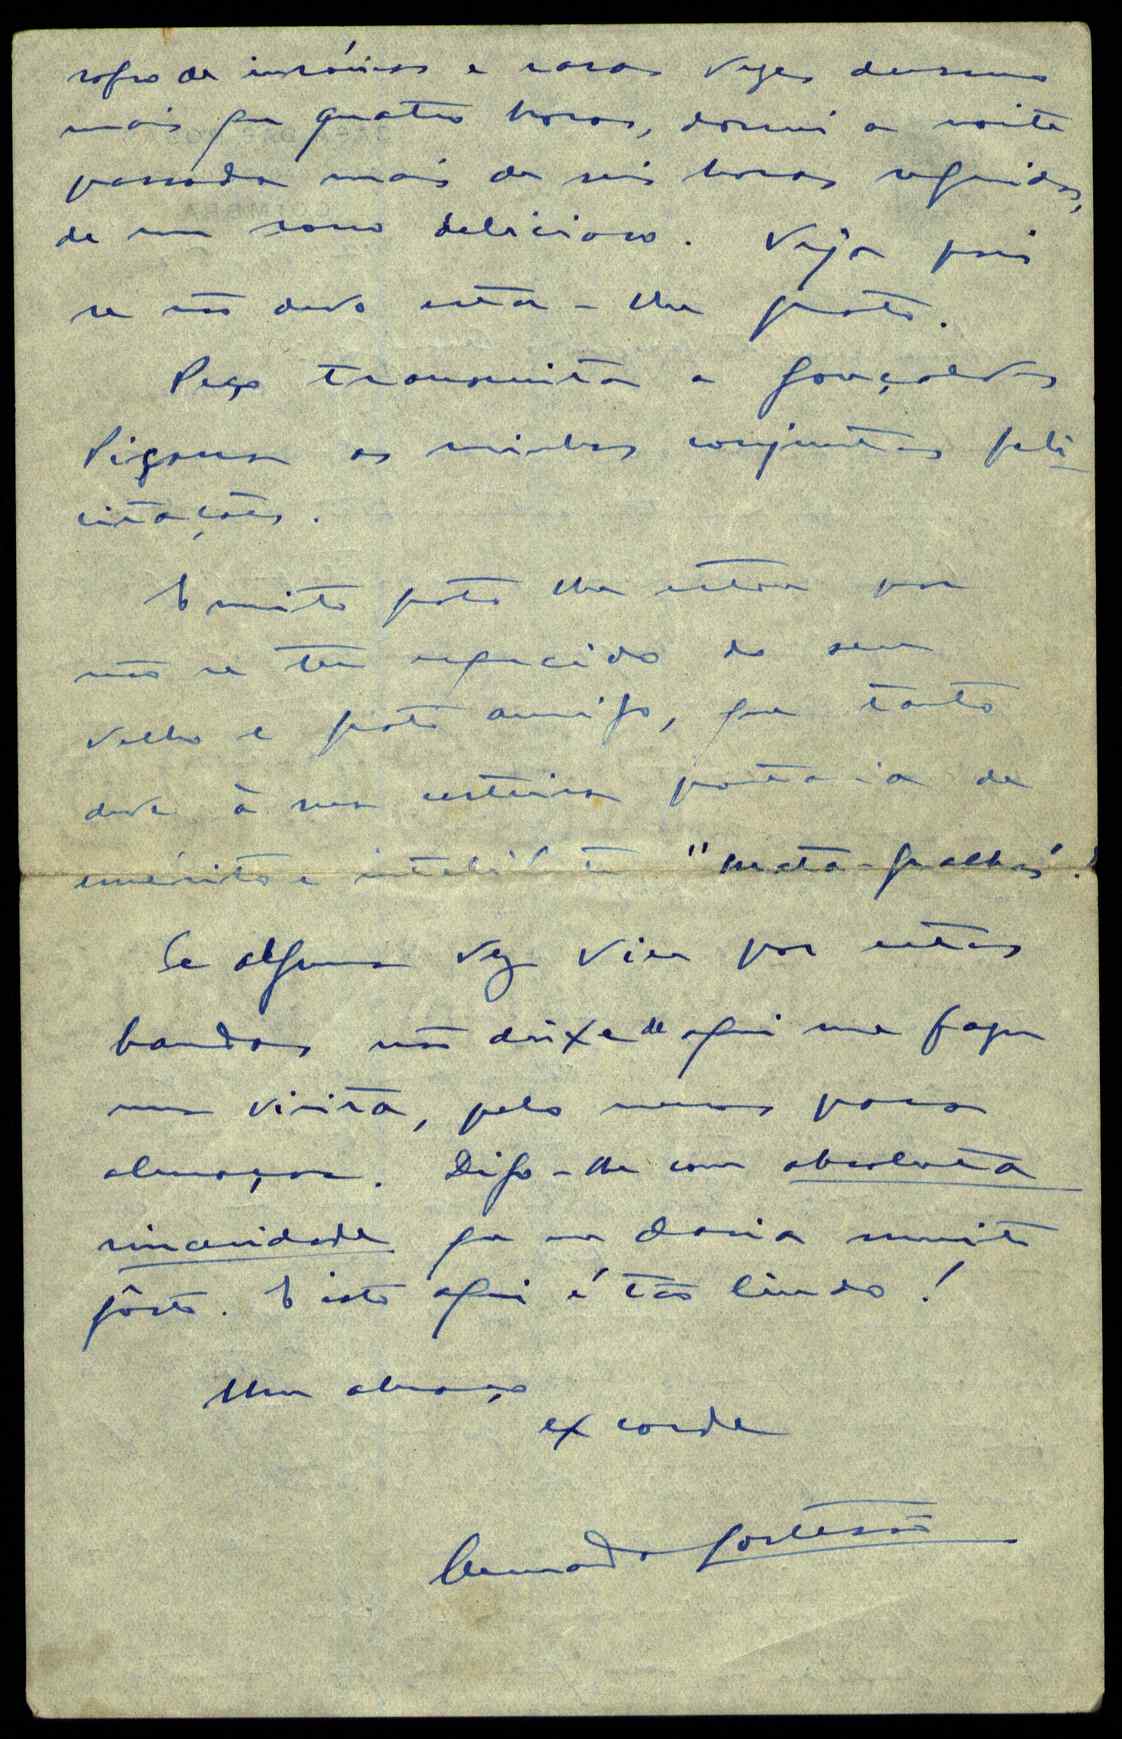 sofro de insónias e raras vezes durmo
mais que quatro horas, dormi a noite
passada mais de seis horas seguidas,
de um sono delicioso. Veja pois
se não devo estar-lhe grato.
Peço transmita a Gonçalves
as minhas conjuntas feli
citações.
E muito grato lhe estou por
não se ter esquecido do seu
velho e grato amigo, que tanto
deve à sua certeira pontaria de
emérito e "mata-gralhas".
Se alguma vez vier por estas
bandas não deixe de aqui me fazer
uma visita, pelo menos para
almoçar. Digo-lhe com absoluta
sinceridade que me daria muito
gôsto. E isto aqui é tão lindo!
Um abraço
ex corde
Cortesão